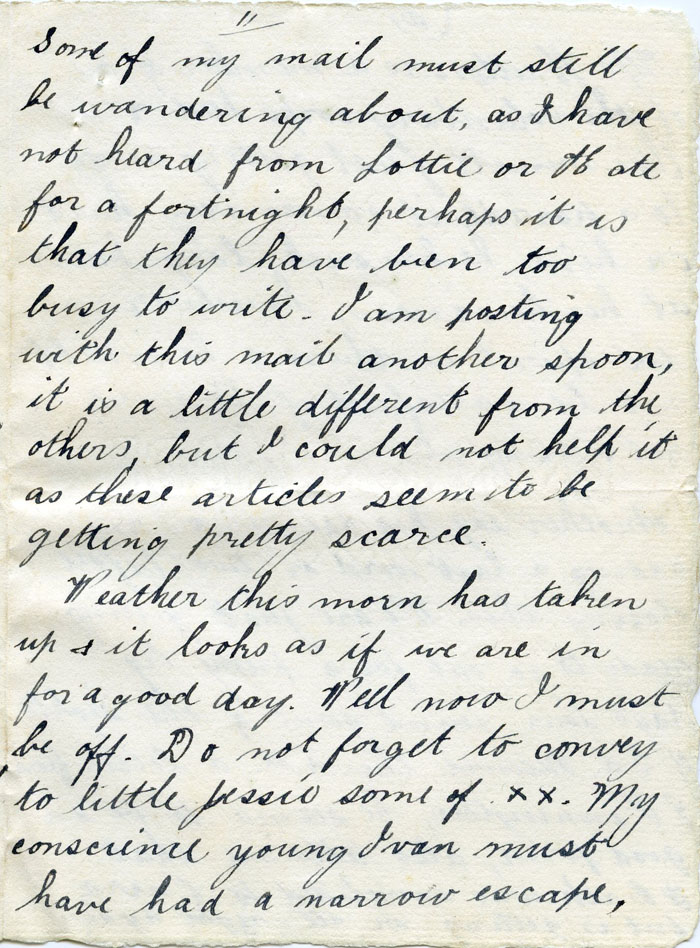 11
Some of my mail must still
be wandering about, as I have
not heard from Lottie or Kate
for a fortnight, perhaps it is
that they have been too
busy to write. I am posting
with this mail another spoon,
it is a little different from the
others, but I could not help it
as these articles seem to be
getting pretty scarce.
Weather this morn has taken
up & it looks as if we are in
for a good day. Well now I must
be off. Do not forget to convey
to little Jessie some of xx. My
conscience young Ivan must
have had a narrow escape,